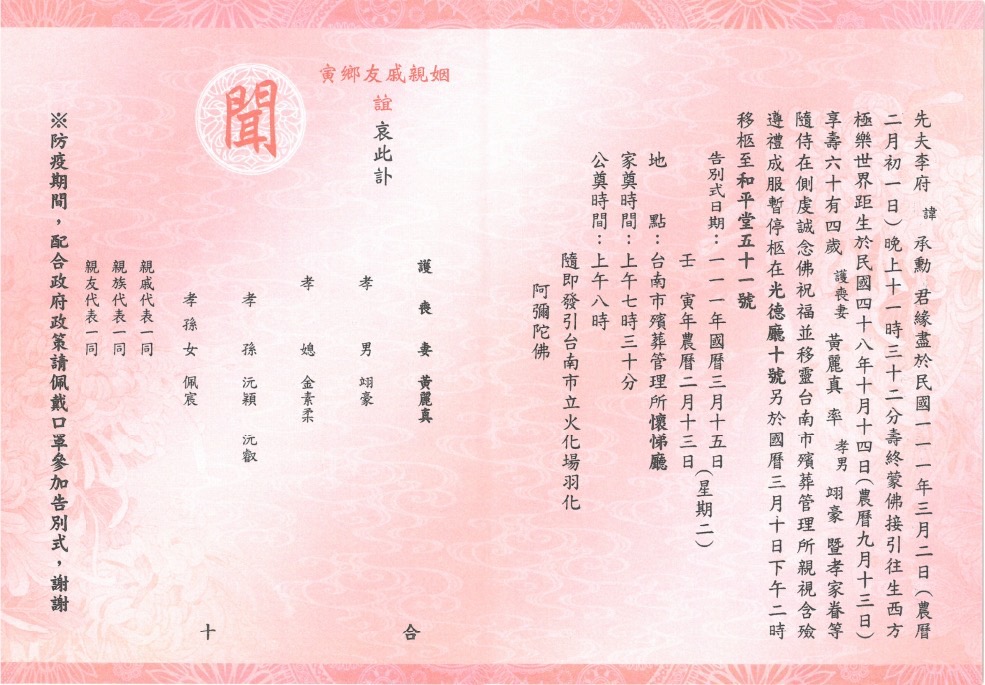 先夫李府 諱 承勳 君緣盡於民國一一一年三月二日(農曆
二月初一日)晚上十一時三十二分壽終蒙佛接引往生西方
極樂世界距生於民國四十八年十月十四日(農曆九月十三日)
享壽六十有四歲 護喪妻 黃麗真 率 孝男 翊豪 暨孝家眷等
隨侍在側虔誠念佛祝福並移靈台南市殯葬管理所親視含殮
遵禮成服暫停柩在光德廳十號另於國曆三月十日下午二時
移柩至和平堂五十一號
告別式日期:一一一年國曆三月十五日
壬 寅年農曆二月十三日
(星期二)
地 點:台南市殯葬管理所懷悌廳
家奠時間:上午七時三十分
公奠時間:上午八時
隨即發引台南市立火化場羽化
阿彌陀佛
寅鄉友戚親姻
誼
哀此訃
聞
護喪妻 黃麗真
孝 男 翊豪
孝 媳 金素柔
孝 孫 沅穎 沅叡
孝孫女 佩宸
合
十
親戚代表一同
親族代表一同
親友代表一同
※防疫期間,配合政府政策請佩戴口罩參加告別式,謝謝